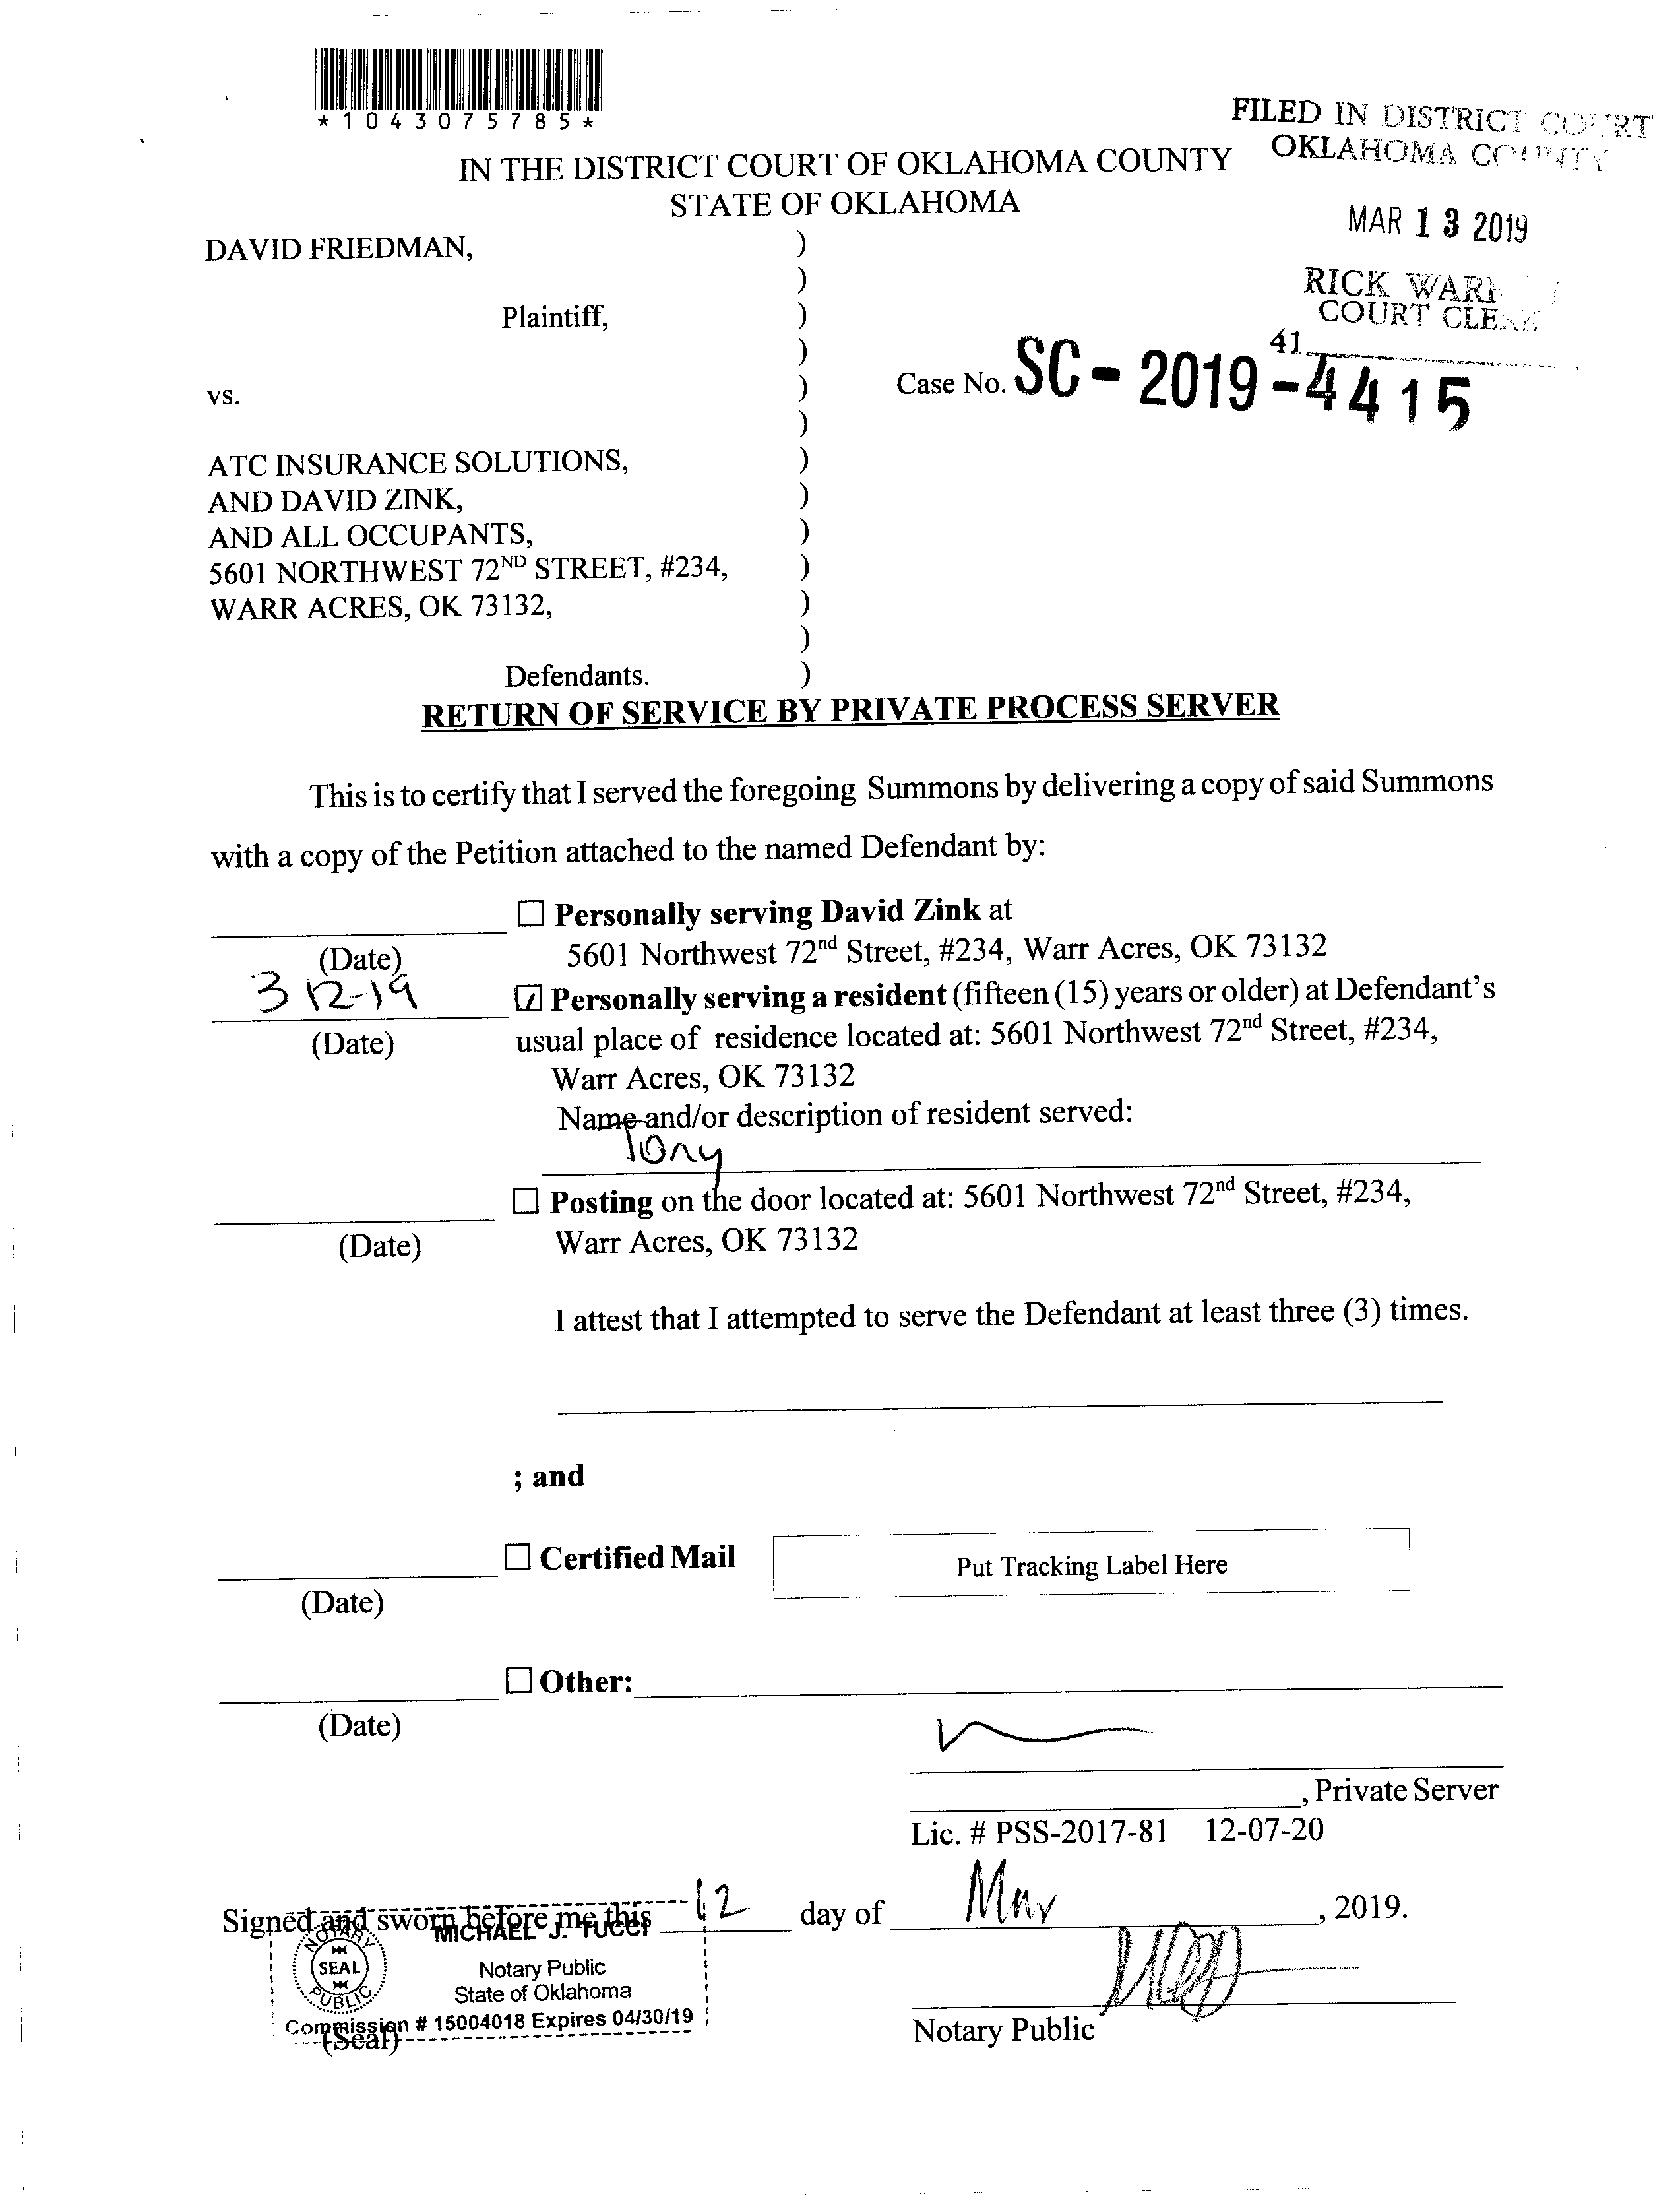 *1043075785*
FILED IN DISTRICT COURT
OKLAHOMA COUNTY
IN THE DISTRICT COURT OF OKLAHOMA COUNTY
STATE OF OKLAHOMA
MAR 13 2019
DAVID FRIEDMAN, )
)
RICK
COURT CLERK
Plaintiff, )
41
)
vs. ) Case No. SC-2019-4415
)
ATC INSURANCE SOLUTIONS, )
AND DAVID ZINK, )
AND ALL OCCUPANTS, )
5601 NORTHWEST 72ND STREET, #234, )
WARR ACRES, OK 73132, )
)
Defendants. )
RETURN OF SERVICE BY PRIVATE PROCESS SERVER
This is to certify that I served the foregoing Summons by delivering a copy of said Summons
with a copy of the Petition attached to the named Defendant by:
☐ Personally serving David Zink at
(Date) 5601 Northwest 72nd Street, #234, Warr Acres, OK 73132
3 12-19 ☑ Personally serving a resident (fifteen (15) years or older) at Defendant's
(Date) usual place of residence located at: 5601 Northwest 72nd Street, #234,
Warr Acres, OK 73132
Name and/or description of resident served:
Tony
☐ Posting on the door located at: 5601 Northwest 72nd Street, #234,
(Date) Warr Acres, OK 73132
I attest that I attempted to serve the Defendant at least three (3) times.
; and
☐ Certified Mail Put Tracking Label Here
(Date)
☐ Other:
(Date)
, Private Server
Lic. # PSS-2017-81 12-07-20
Signed and sworn before me this 12 day of Mar, 2019.
MICHAEL J. TUCCI
NOTARY
SEAL
PUBLIC
Notary Public
State of Oklahoma
Commission # 15004018 Expires 04/30/19
(Seal)
Notary Public